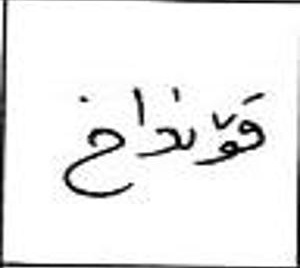 قۆنداخ